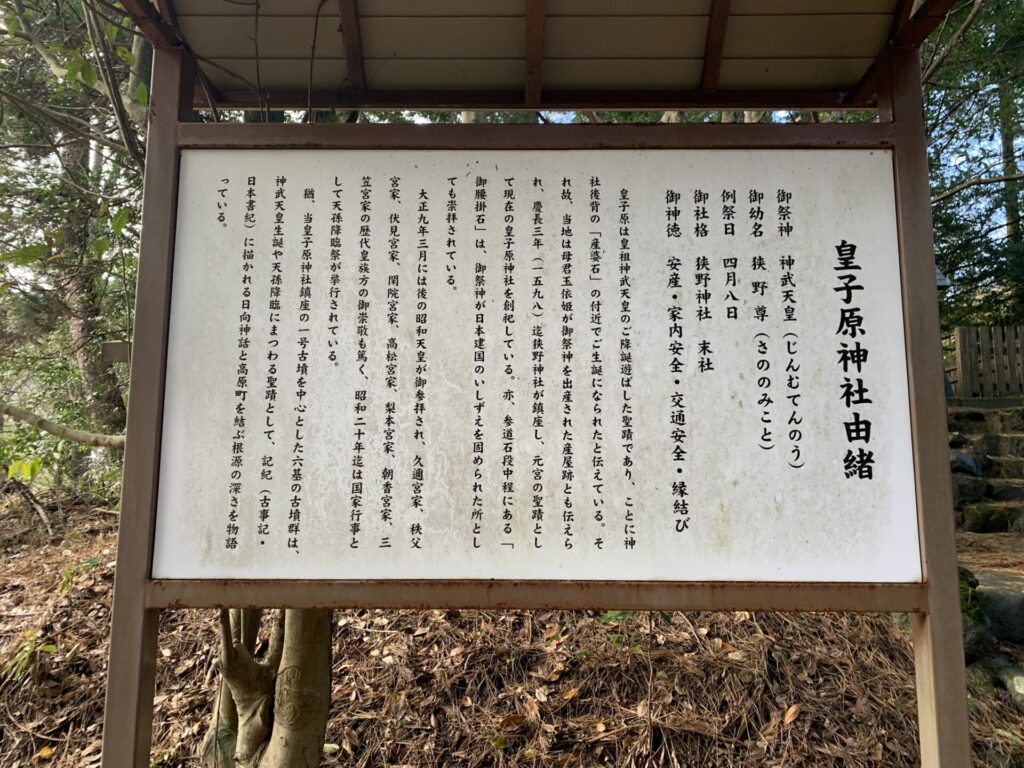 皇子原神社由緒
御祭神　神武天皇（じんむてんのう）
御幼名　狭野尊（さののみこと）
例祭日　四月八日
御社格　狭野神社　末社
御神徳　安産・家内安全・交通安全・縁結び
皇子原は皇祖神武天皇のご降誕遊ばした聖蹟であり、ことに神
社後背の「産婆石」の付近でご生誕になられたと伝えている。そ
れ故、当地は母君玉依姫が御祭神を出産された産屋跡とも伝えら
れ、慶長三年（一五九八）迄狭野神社が鎮座し、元宮の聖蹟とし
て現在の皇子原神社を創祀している。亦、参道石段中程にある「
御腰掛石」は、御祭神が日本建国のいしずえを固められた所とし
ても崇拝されている。
大正九年三月には後の昭和天皇が御参拝され、久邇宮家、秩父
宮家、伏見宮家、閑院宮家、高松宮家、梨本宮家、朝香宮家、三
笠宮家の歴代皇族方の御崇敬も篤く、昭和二十年迄は国家行事と
して天孫降臨祭が挙行されている。
猶、当皇子原神社鎮座の一号古墳を中心とした六基の古墳群は、
神武天皇生誕や天孫降臨にまつわる聖蹟として、記紀（古事記・
日本書紀）に描かれる日向神話と高原町を結ぶ根源の深さを物語
っている。